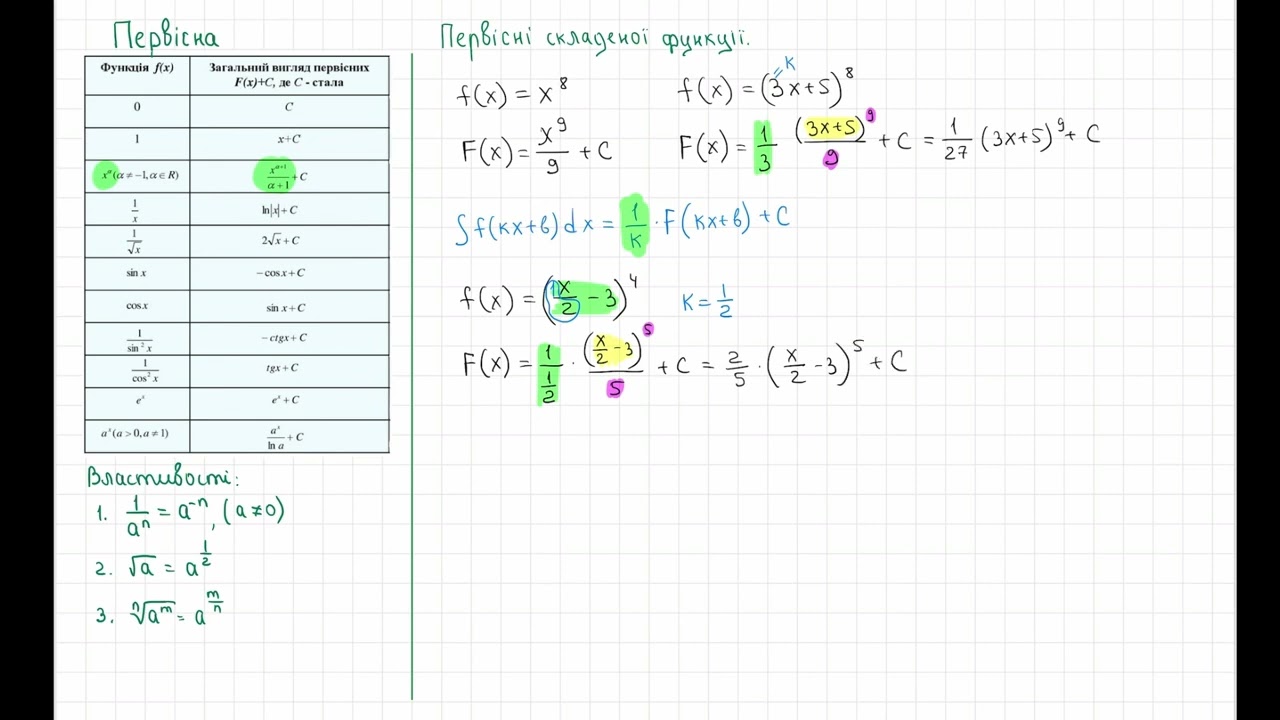 Первісна
Функція f(x) Загальний вигляд первісних F(x)+C, де C - стала
0 C
1 x+C
x^α (α ≠ −1, α ∈ R) x^(α+1)/(α+1) + C
1/x ln|x| + C
1/√x 2√x + C
sin x −cos x + C
cos x sin x + C
1/sin² x −ctgx + C
1/cos² x tgx + C
e^x e^x + C
a^x (a > 0, a ≠ 1) a^x/ln a + C
Властивості:
1. 1/a^n = a^(-n), (a ≠ 0)
2. √a = a^(1/2)
3. ⁿ√(a^m) = a^(m/n)
Первісні складеної функції.
f(x) = x^8
F(x) = x^9/9 + C
K
f(x) = (3x+5)^8
F(x) = 1/3 (3x+5)^9/9 + C = 1/27 (3x+5)^9 + C
∫f(кx+в)dx = 1/к · F(кx+в) + C
f(x) = (x/2 − 3)^4 K = 1/2
F(x) = 1/(1/2) · (x/2 − 3)^5/5 + C = 2/5 · (x/2 − 3)^5 + C